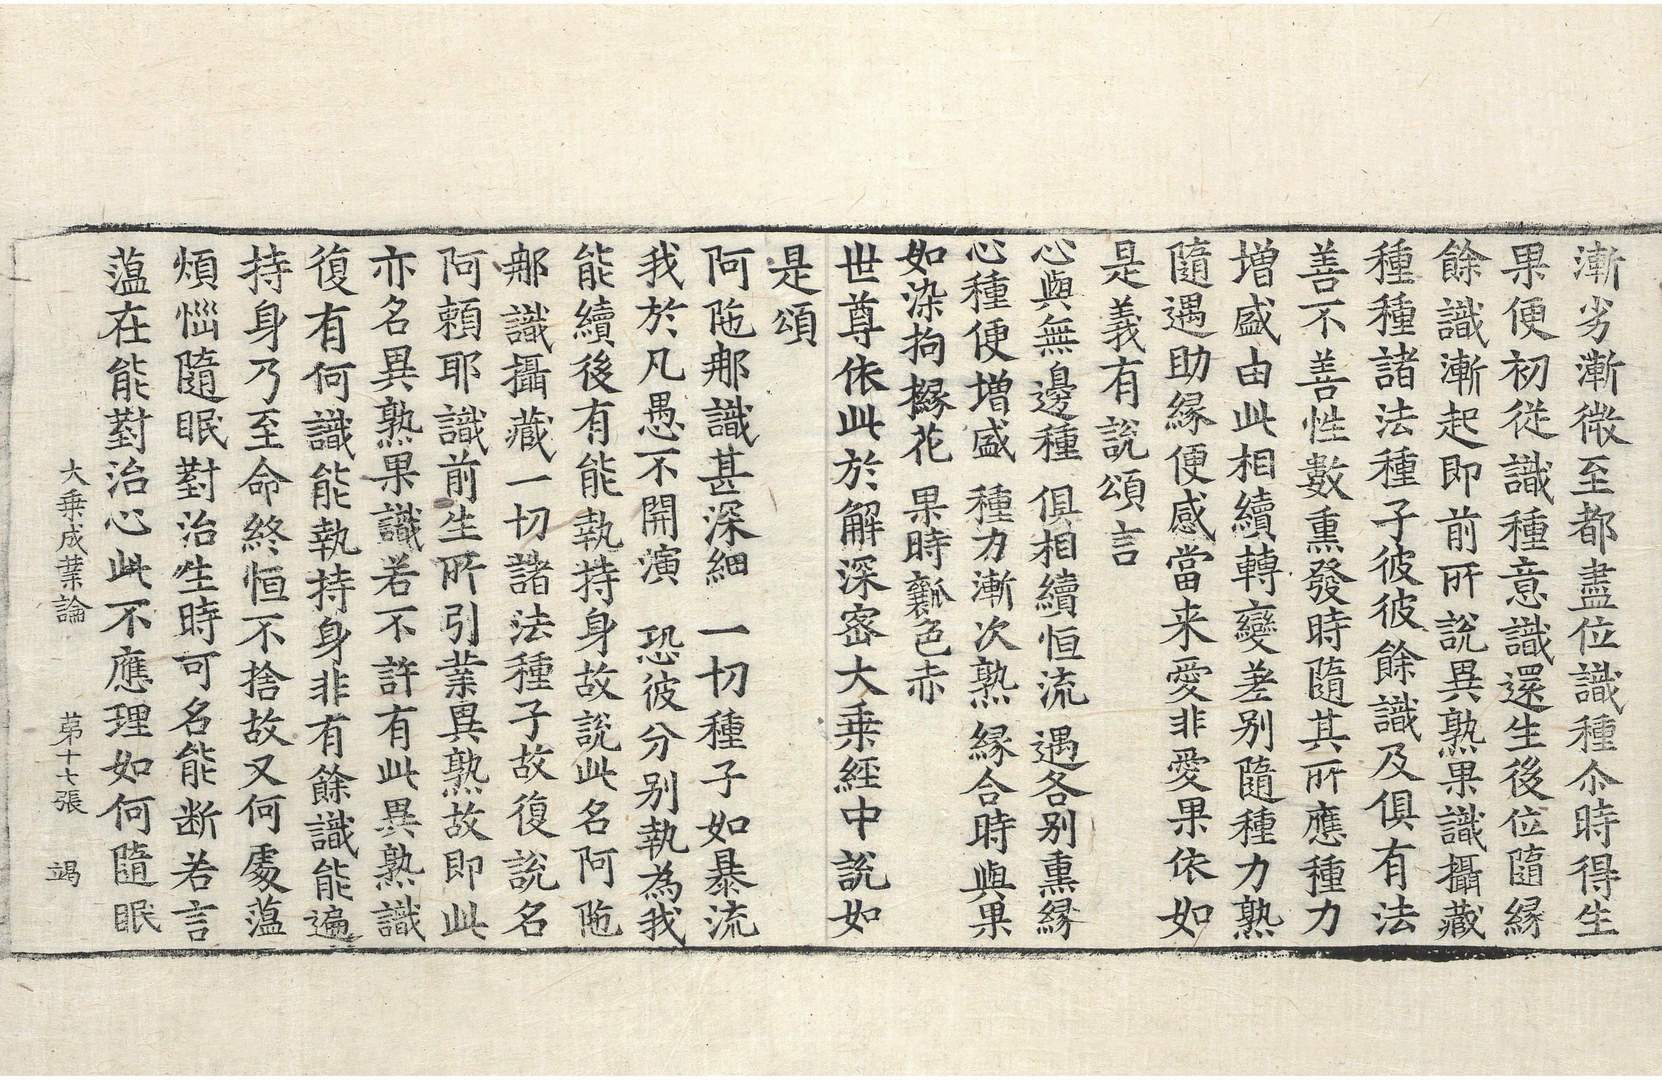 漸劣漸微至都盡位識種尒時得生
果便初從識種意識還生後位隨緣
餘識漸起即前所說異熟果識攝藏
種種諸法種子彼彼餘識及俱有法
善不善性數熏發時隨其所應種力
增盛由此相續轉變差別隨種力熟
隨遇助緣便感當来愛非愛果依如
是義有說頌言
心與無邊種　俱相續恒流　遇各别熏緣
心種便增盛　種力漸次熟　緣合時與果
如染拘櫞花　果時瓤色赤
世尊依此於解深密大乘經中說如
是頌
阿陁那識甚深細　一切種子如暴流
我於凡愚不開演　恐彼分别執為我
能續後有能執持身故說此名阿陁
那識攝藏一切諸法種子故復說名
阿頼耶識前生所引業異熟故即此
亦名異熟果識若不許有此異熟識
復有何識能執持身非有餘識能遍
持身乃至命終恒不捨故又何處薀
煩惱隨眠對治生時可名能断若言
薀在能對治心此不應理如何隨眠
大乗成業論　第十七張　竭